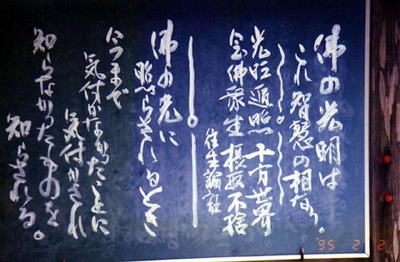 佛の光明は
これ智慧の相なり。
光明遍照 十方世界
念佛衆生 摂取不捨
往生論註
佛の光に
照らされるとき
今まで
気付かなかったことに
気付かされ
知らなかったものを
知らされる。
'95 2 2